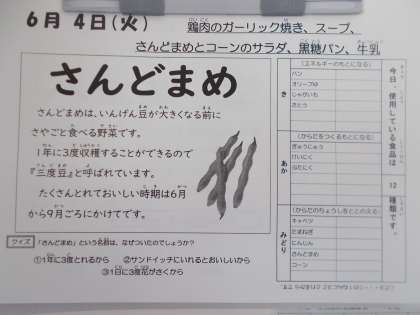 6月 4日(火)
鶏肉のガーリック焼き、スープ、
さんどまめとコーンのサラダ、黒糖パン、牛乳
さんどまめ
さんどまめは、いんげん豆が大きくなる前に
さやごと食べる野菜です。
1年に3度収穫することができるので
『三度豆』と呼ばれています。
たくさんとれておいしい時期は6月
から9月ごろにかけてです。
クイズ 「さんどまめ」という名前は、なぜついたのでしょうか?
①1年に3度とれるから ②サンドイッチにいれるとおいしいから
③1日に3度花がさくから
今日、使用している食品は 12 種類です。
き
(エネルギーのもとになる)
パン
オリーブゆ
じゃがいも
さとう
あか
(からだをつくるもとになる)
ぎゅうにゅう
けいにく
ぶたにく
みどり
(からだのちょうしをととのえる)
キャベツ
たまねぎ
にんじん
さんどまめ
コーン